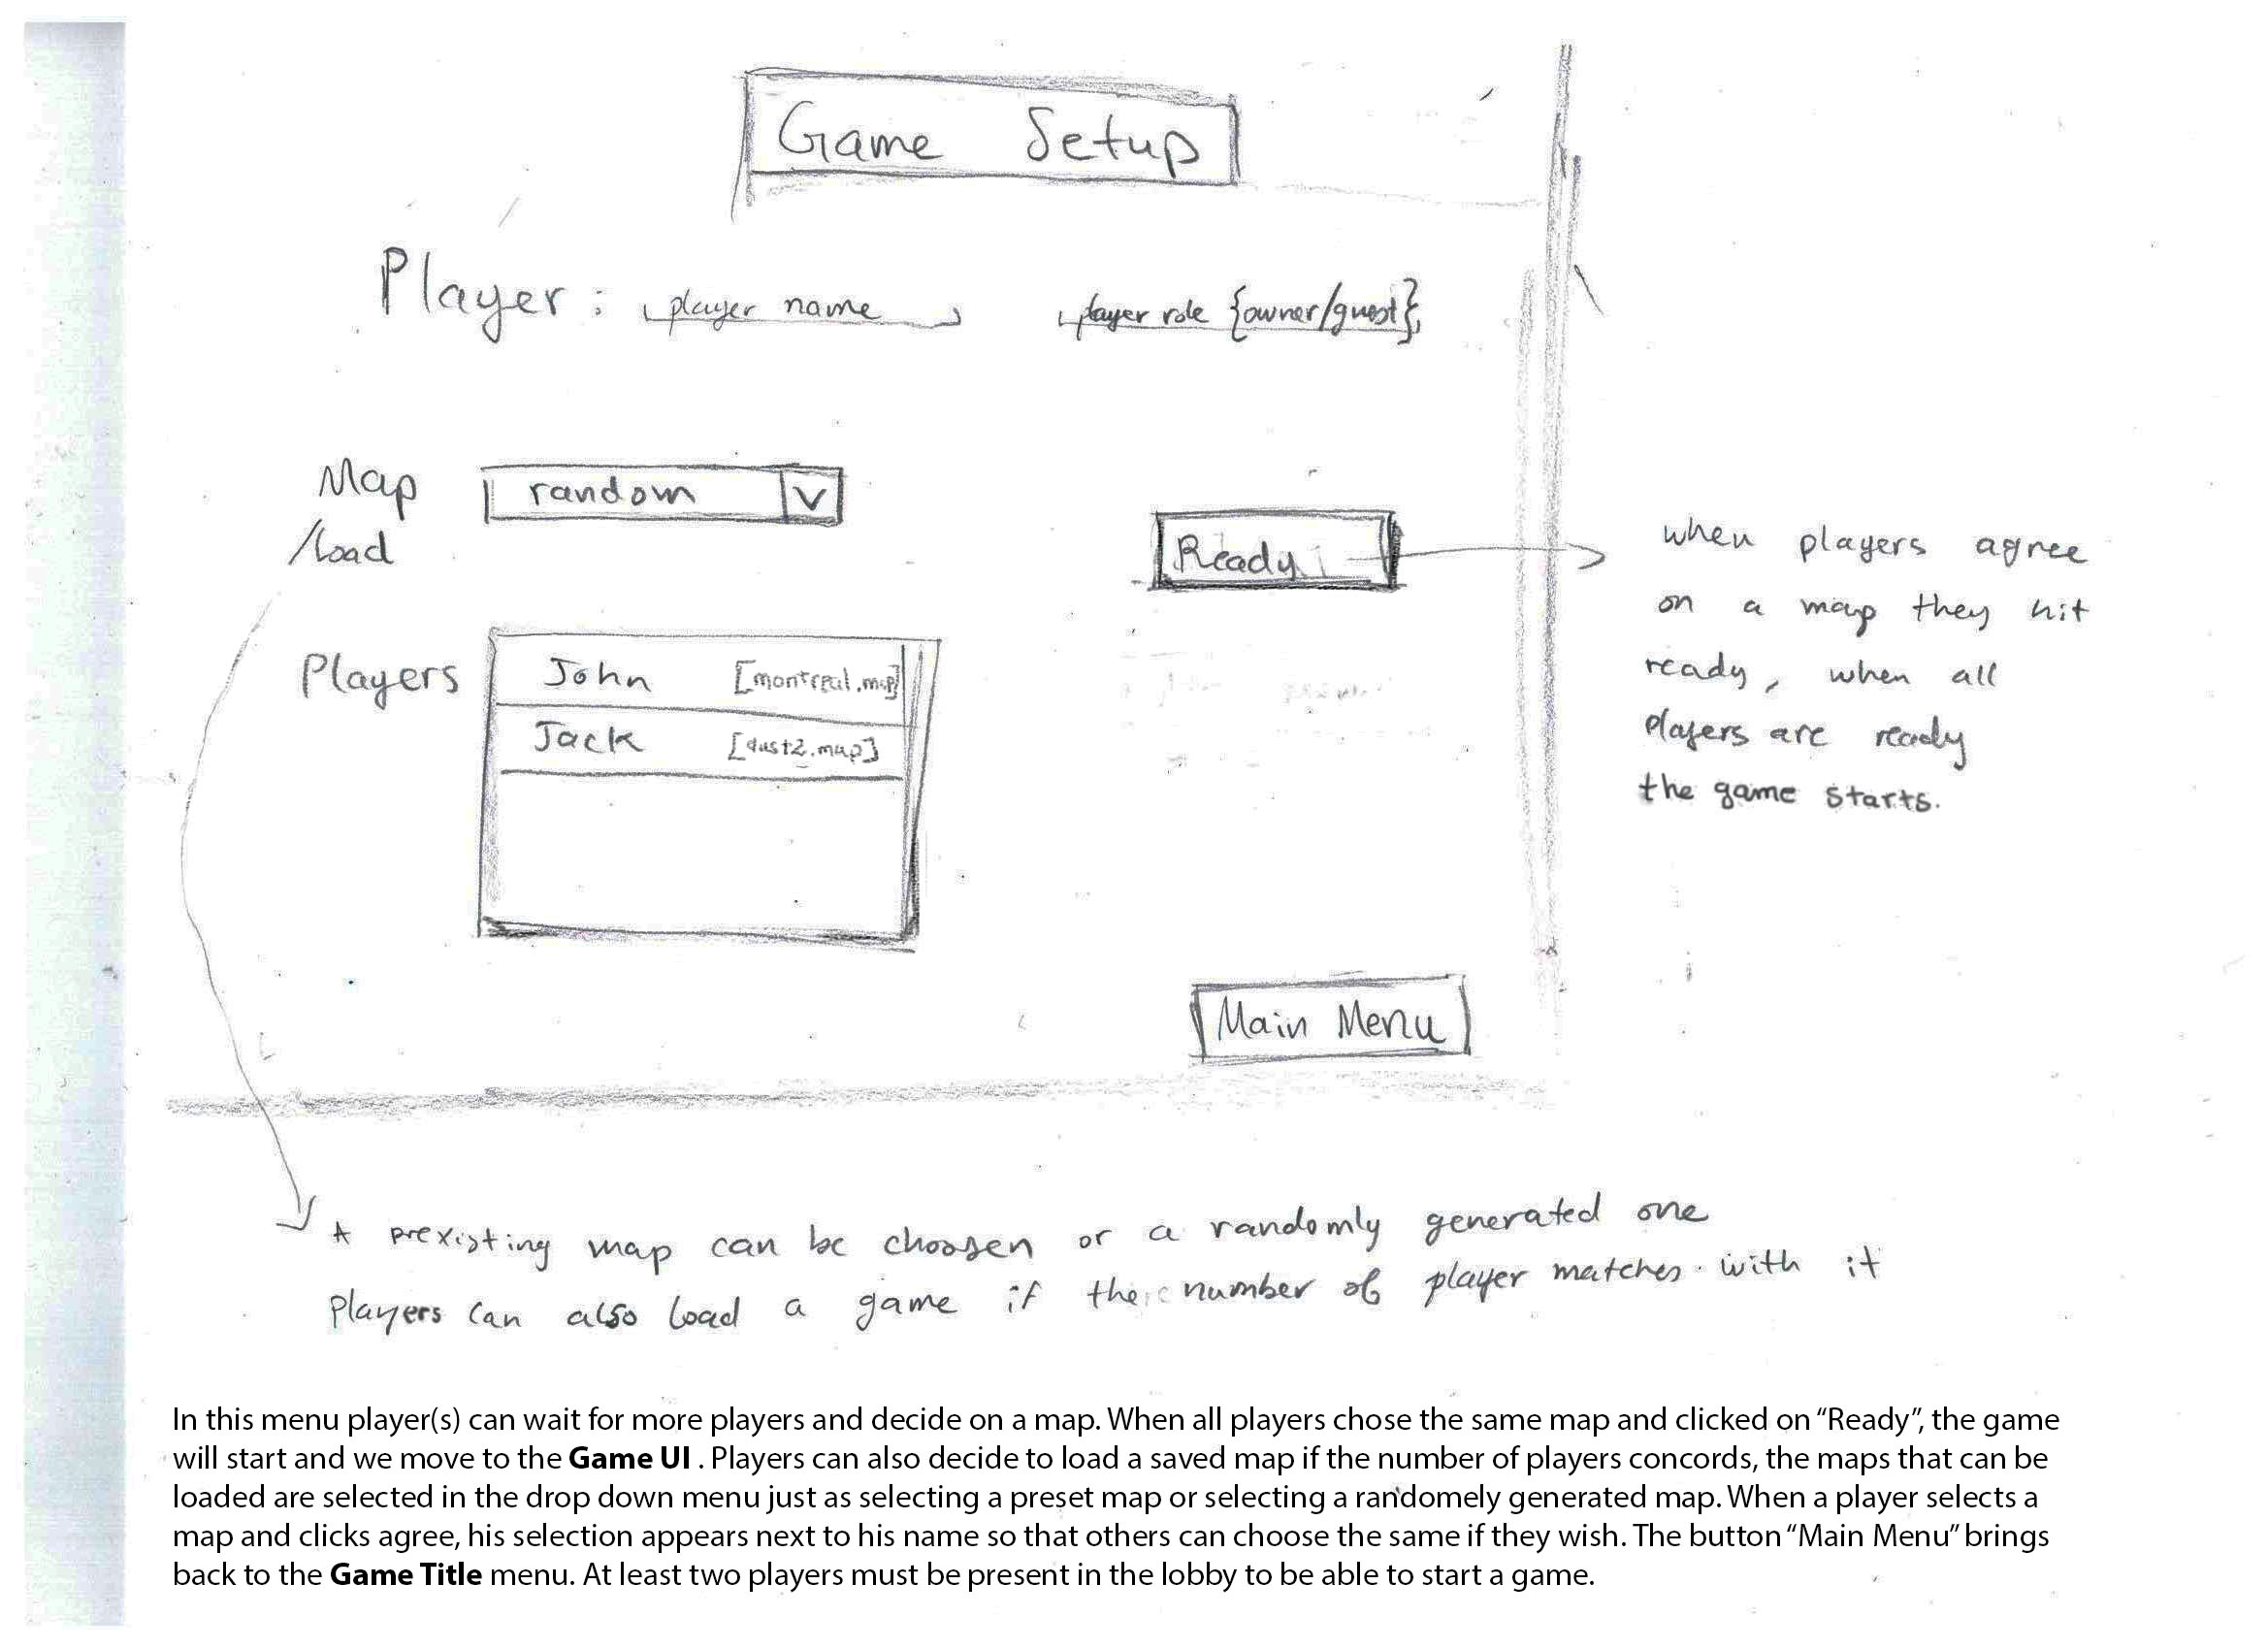 Game Setup
Player : player name player role {owner/guest}
Map
/load
random V
Ready
Players
John [montreal.map]
Jack [dust2.map]
when players agree
on a map they hit
ready, when all
players are ready
the game starts.
Main Menu
A prexisting map can be choosen or a randomly generated one
Players can also load a game if the number of player matches with it
In this menu player(s) can wait for more players and decide on a map. When all players chose the same map and clicked on “Ready”, the game
will start and we move to the Game UI . Players can also decide to load a saved map if the number of players concords, the maps that can be
loaded are selected in the drop down menu just as selecting a preset map or selecting a randomely generated map. When a player selects a
map and clicks agree, his selection appears next to his name so that others can choose the same if they wish. The button “Main Menu” brings
back to the Game Title menu. At least two players must be present in the lobby to be able to start a game.